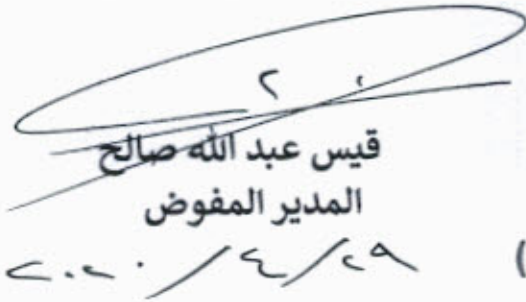 قيس عبد الله صالح
المدير المفوض
٢٠٢٠/٤/٢٩